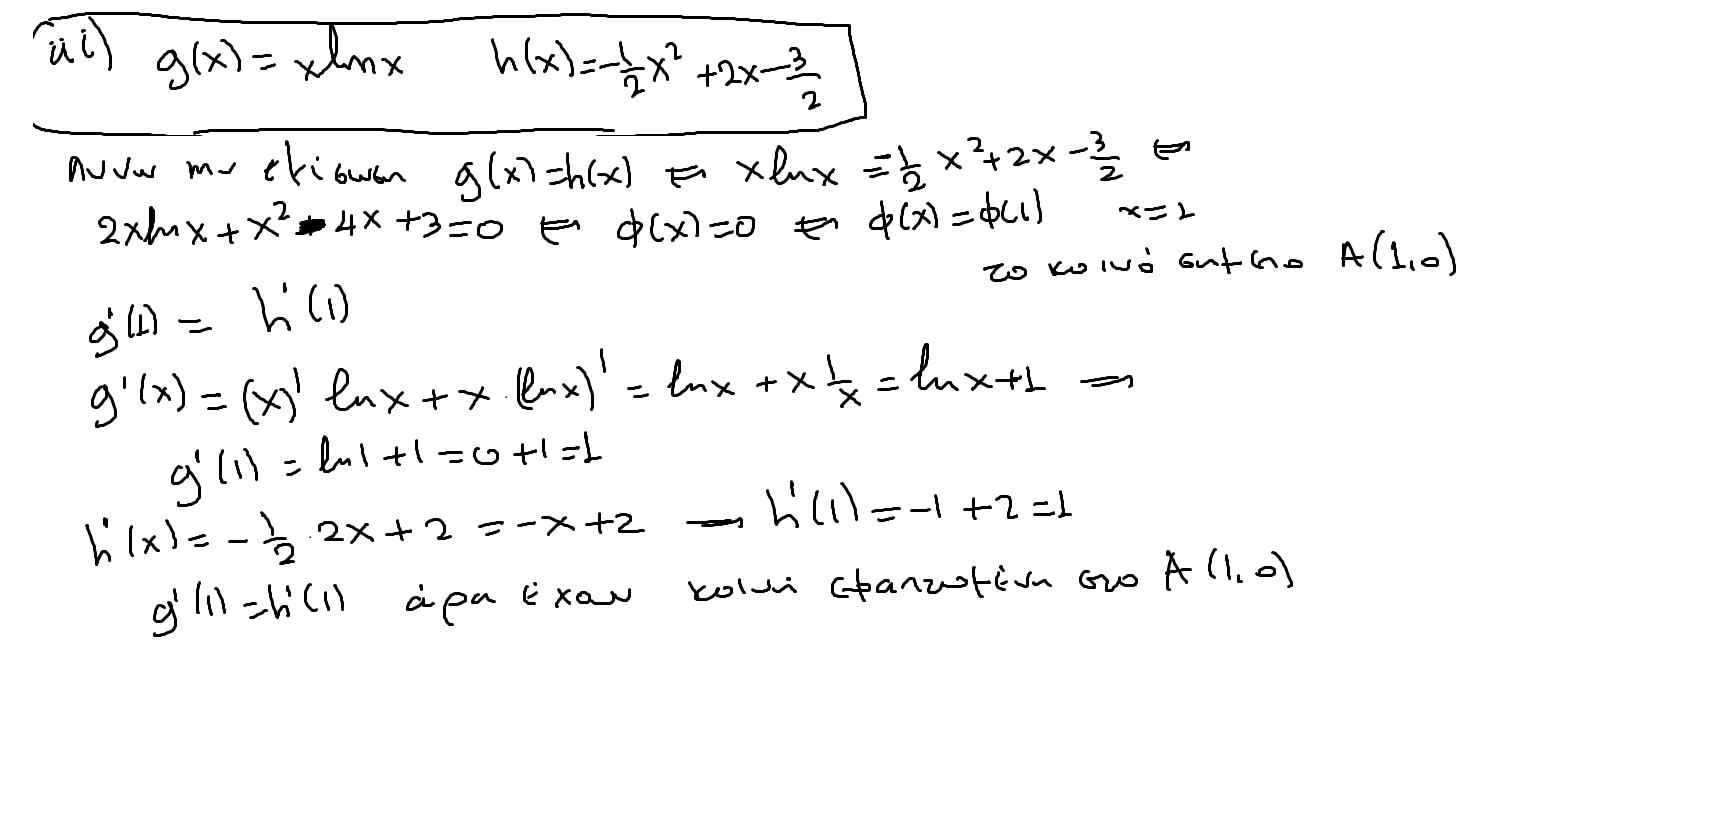 iii) g(x) = xlnx h(x) = -1/2 x² + 2x - 3/2
Λύνω την εξίσωση g(x) = h(x) ⇔ xlnx = -1/2 x² + 2x - 3/2 ⇔
2xlnx + x² - 4x + 3 = 0 ⇔ φ(x) = 0 ⇔ φ(x) = φ(1) x = 1
το κοινό σημείο A(1,0)
g'(1) = h'(1)
g'(x) = (x)' lnx + x · (lnx)' = lnx + x 1/x = lnx + 1 →
g'(1) = ln1 + 1 = 0 + 1 = 1
h'(x) = - 1/2 · 2x + 2 = -x + 2 → h'(1) = -1 + 2 = 1
g'(1) = h'(1) άρα έχουν κοινή εφαπτομένη στο A(1,0)